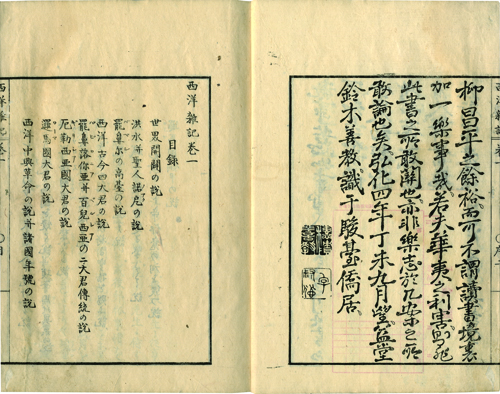 柳昌平之餘裕而可不謂讀書境裏
加一樂事哉若夫華夷之利害則非
此書之所敢關也亦非樂志於之所
敢論也矣弘化四年丁未九月堂
鈴木善教識于駿臺僑居
西洋雜記卷一
目録
世界開闢の說
洪水并聖人諾厄の說
罷鼻尔の高臺の說
西洋古今四大君の說
罷鼻落你亜并百兒西亜の二大君傳統の說
厄勒西亜國大君の說
羅馬國大君の說
西洋中興革命の說并諸國年號の說
西洋雜記卷一